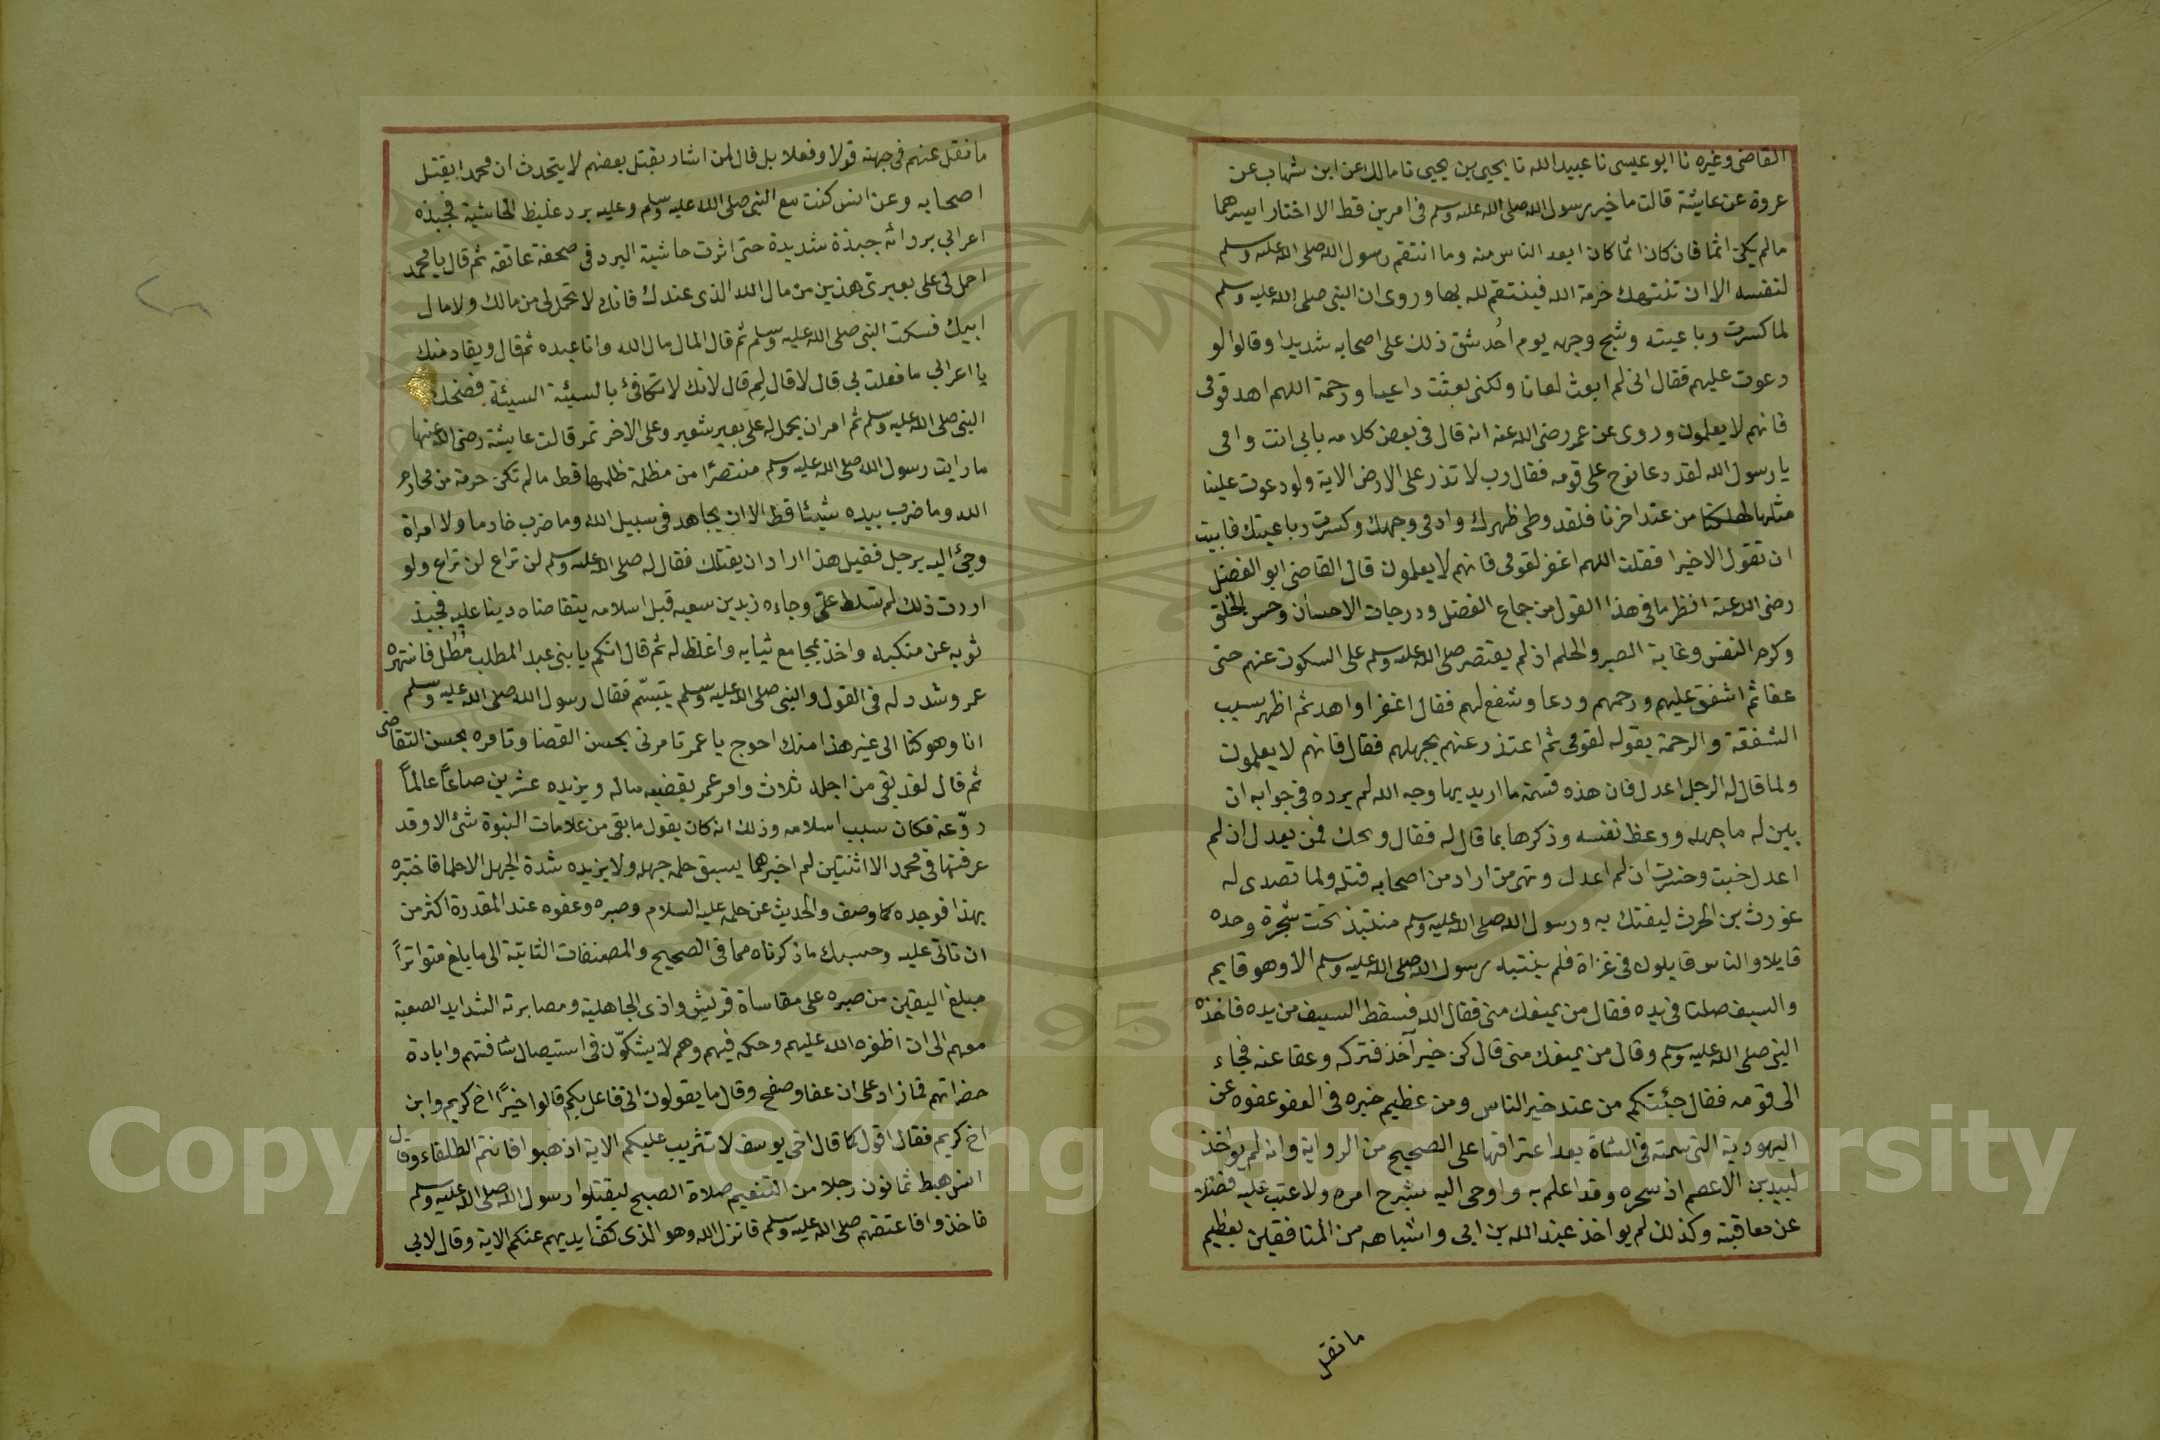 القاضى وغيره نا ابو عيسى نا عبيد الله نا يحيى بن يحيى نا مالك عن ابن شهاب عن
عروة عن عايشة قالت ما خير رسول الله صلى الله عليه وسلم فى امرين قط الا اختار ايسرهما
مالم يكن اثما فان كان اثما كان ابعد الناس منه وما انتقم رسول الله صلى الله عليه وسلم
لنفسه الا ان تنتهك حرمة الله فينتقم لله بها وروى ان النبى صلى الله عليه وسلم
لما كسرت رباعيته وشج وجهه يوم احُد شق ذلك على اصحابه شديدا وقالوا لو
دعوت عليهم فقال انى لم ابعث لعانا ولكنى بعثت داعيا ورحمة اللهم اهد قومى
فانهم لا يعلمون وروى عن عمر رضى الله عنه انه قال فى بعض كلامه بابى انت وامى
يا رسول الله لقد دعا نوح على قومه فقال رب لا تذر على الارض الاية ولو دعوت علينا
مثلها لهلكنا من عند اخرنا فلقد وطى ظهرك وادمى وجهك وكسرت رباعيتك فابيت
ان تقول الا خيرا فقلت اللهم اغفر لقومى فانهم لا يعلمون قال القاضى ابو الفضل
رضى الله عنه انظر ما فى هذا القول من جماع الفضل ودرجات الاحسان وحسن الخلق
وكرم النفس وغاية الصبر والحلم اذ لم يقتصر صلى الله عليه وسلم على السكوت عنهم حتى
عفا ثم اشفق عليهم ورحمهم ودعا وشفع لهم فقال اغفر او اهد ثم اظهر سبب
الشفقة والرحمة بقوله لقومى ثم اعتذر عنهم بجهلهم فقال فانهم لا يعلمون
ولما قال له الرجل اعدل فان هذه قسمة ما اريد بها وجه الله لم يرده فى جوابه ان
بين له ما جهله ووعظ نفسه وذكرها بما قال له فقال ويحك فمن يعدل ان لم
اعدل خبت وخسرت ان لم اعدل ونهى من اراد من اصحابه قتله ولما تصدى له
غورث بن الحرث ليفتك به ورسول الله صلى الله عليه وسلم منتبذ تحت شجرة وحده
قايلا والناس قايلون فى غزاة فلم ينتبه رسول الله صلى الله عليه وسلم الا وهو قايم
والسيف صلتا فى يده فقال من يمنعك منى فقال الله فسقط السيف من يده فاخذه
النبى صلى الله عليه وسلم وقال من يمنعك منى قال كن خير آخذ فتركه وعفا عنه فجاء
الى قومه فقال جئتكم من عند خير الناس ومن عظيم خبره فى العفو عفوه عن
اليهودية التى سمته فى الشاة بعد اعترافها على الصحيح من الرواية وانه لم يواخذ
لبيد بن الاعصم اذ سحره وقد اعلم به واوحى اليه بشرح امره ولا عتب عليه فضلا
عن معاقبته وكذلك لم يواخذ عبد الله بن ابى واشباهه من المنافقين بعظيم
ما نقل
ما نقل عنهم فى جهته قولا وفعلا بل قال لمن اشار بقتل بعضهم لا يتحدث ان محمدا يقتل
اصحابه وعن انس كنت مع النبى صلى الله عليه وسلم وعليه برد غليظ الحاشية فجبذه
اعرابى بردائه جبذة شديدة حتى اثرت حاشية البرد فى صحفة عاتقه ثم قال يا محمد
احمل لى على بعيرى هذين من مال الله الذى عندك فانك لا تحمل لى من مالك ولا مال
ابيك فسكت النبى صلى الله عليه وسلم ثم قال المال مال الله وانا عبده ثم قال ويقاد منك
يا اعرابى ما فعلت بى قال لا قال لِم قال لانك لا تكافئ بالسيئة السيئة فضحك
النبى صلى الله عليه وسلم ثم امر ان يحمل له على بعير شعير وعلى الاخر تمر قالت عايشة رضى الله عنها
ما رايت رسول الله صلى الله عليه وسلم منتصرًا من مظلمة ظلمها قط مالم تكن حرمة من محارم
الله وما ضرب بيده شيئا قط الا ان يجاهد فى سبيل الله وما ضرب خادما ولا امراة
وجئ اليه برجل فقيل هذا اراد ان يقتلك فقال له صلى الله عليه وسلم لن تراع لن تراع ولو
اردت ذلك لم تسلط علىّ وجاءه زيد بن سعيه قبل اسلامه يتقاضاه دينا عليه فجبذ
ثوبه عن منكبه واخذ بمجامع ثيابه واغلظ له ثم قال انكم يا بنى عبد المطلب مُطُل فانتهره
عمر وشدد له فى القول والنبى صلى الله عليه وسلم يتبسّم فقال رسول الله صلى الله عليه وسلم
انا وهو كنا الى غير هذا منك احوج يا عمر تامرنى بحسن القضا وتامره بحسن التقاضى
ثم قال لقد بقى من اجله ثلاث وامر عمر يقضيه ماله ويزيده عشرين صاعاً عالماً
روّعه فكان سبب اسلامه وذلك انه كان يقول ما بقى من علامات النبوة شئ الا وقد
عرفتها فى محمد الا اثنتين لم اخبرهما يسبق حلمه جهله ولا يزيده شدة الجهل الا حلما فاختبره
بهذا فوجده كما وصف والحديث عن حلمه عليه السلام وصبره وعفوه عند المقدرة اكثر من
ان تاتى عليه وحسبك ما ذكرناه مما فى الصحيح والمصنفات الثابتة الى ما بلغ متواتراً
مبلغ اليقين من صبره على مقاساة قريش واذى الجاهلية ومصابرته الشدايد الصعبة
معهم الى ان اظفره الله عليهم وحكمه فيهم وهم لا يشكوّن فى استيصال شافتهم وابادة
خضرائهم فما زاد على ان عفا وصفح وقال ما يقولون انى فاعل بكم قالوا خيرًا اخ كريم وابن
اخ كريم فقال اقول كما قال اخى يوسف لا تثريب عليكم الاية اذهبوا فانتم الطلقاء وقال
انس هبط ثمانون رجلا من التنعيم صلاة الصبح ليقتلوا رسول الله صلى الله عليه وسلم
فاخذوا فاعتقهم صلى الله عليه وسلم فانزل الله وهو الذى كف ايديهم عنكم الاية وقال لابى
Copyright © King Saud University
1957